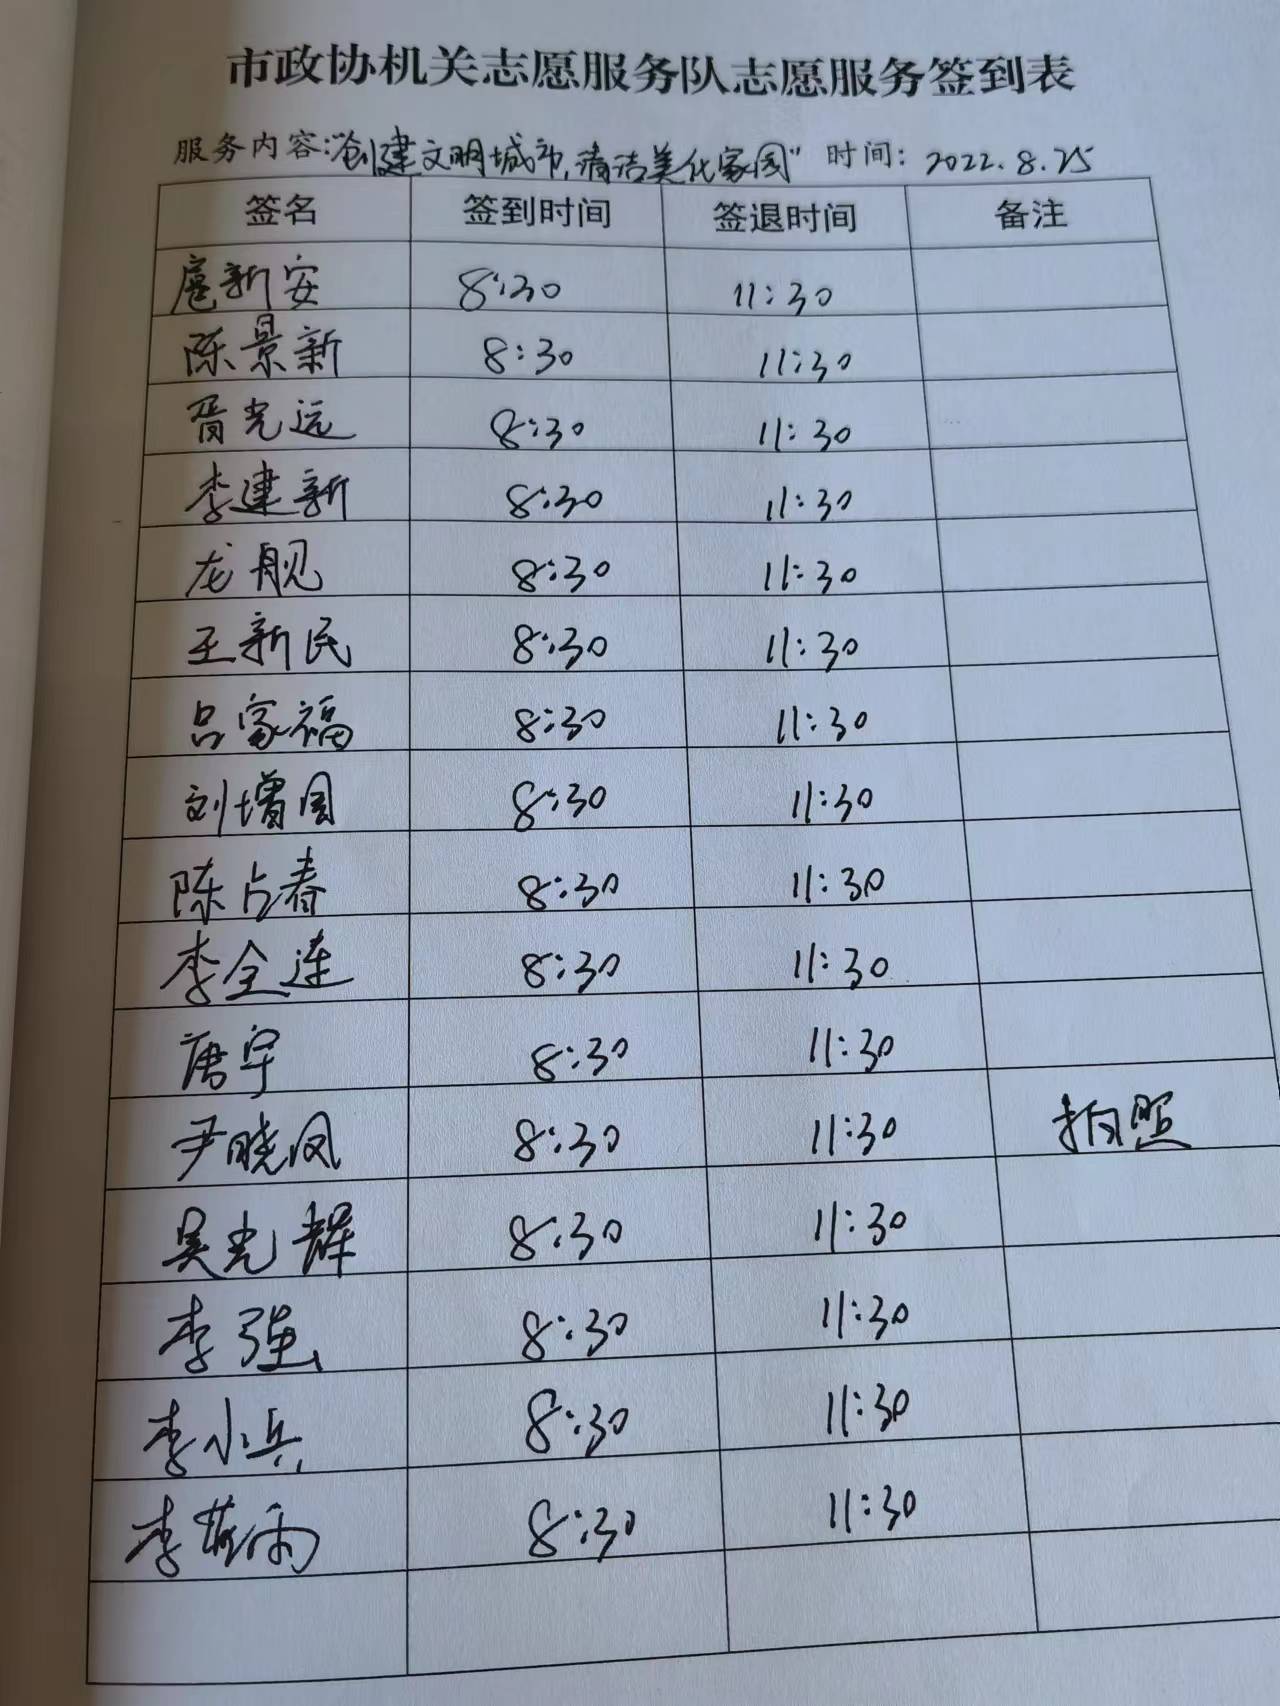 市政协机关志愿服务队志愿服务签到表
服务内容:"创建文明城市,清洁美化家园" 时间: 2022.8.25
签名 签到时间 签退时间 备注
扈新安 8:30 11:30
陈景新 8:30 11:30
胥光远 8:30 11:30
李建新 8:30 11:30
龙舰 8:30 11:30
王新民 8:30 11:30
吕家福 8:30 11:30
刘增国 8:30 11:30
陈占春 8:30 11:30
李全连 8:30 11:30
唐宇 8:30 11:30
尹晓凤 8:30 11:30 拍照
吴光辉 8:30 11:30
李强 8:30 11:30
李小兵 8:30 11:30
李 雨 8:30 11:30